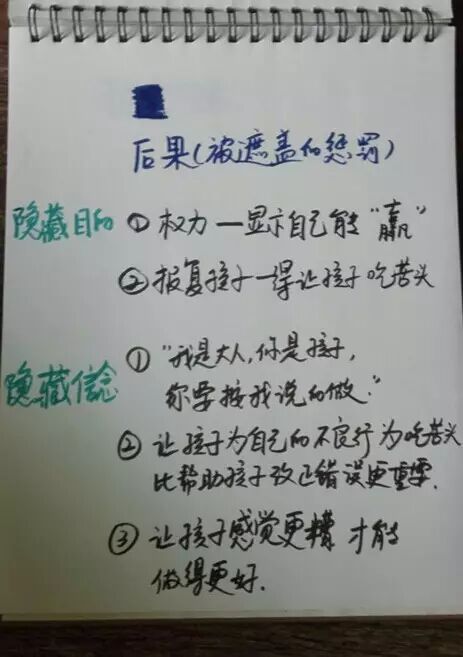 后果(被遮盖的惩罚)
隐藏目的 ① 权力一显示自己能“赢”
② 报复孩子一得让孩子吃苦头
隐藏信念 ① “我是大人,你是孩子,
你要按我说的做.”
② 让孩子为自己的不良行为吃苦头
比帮助孩子改正错误更重要.
③ 让孩子感觉更糟 才能
做得更好.